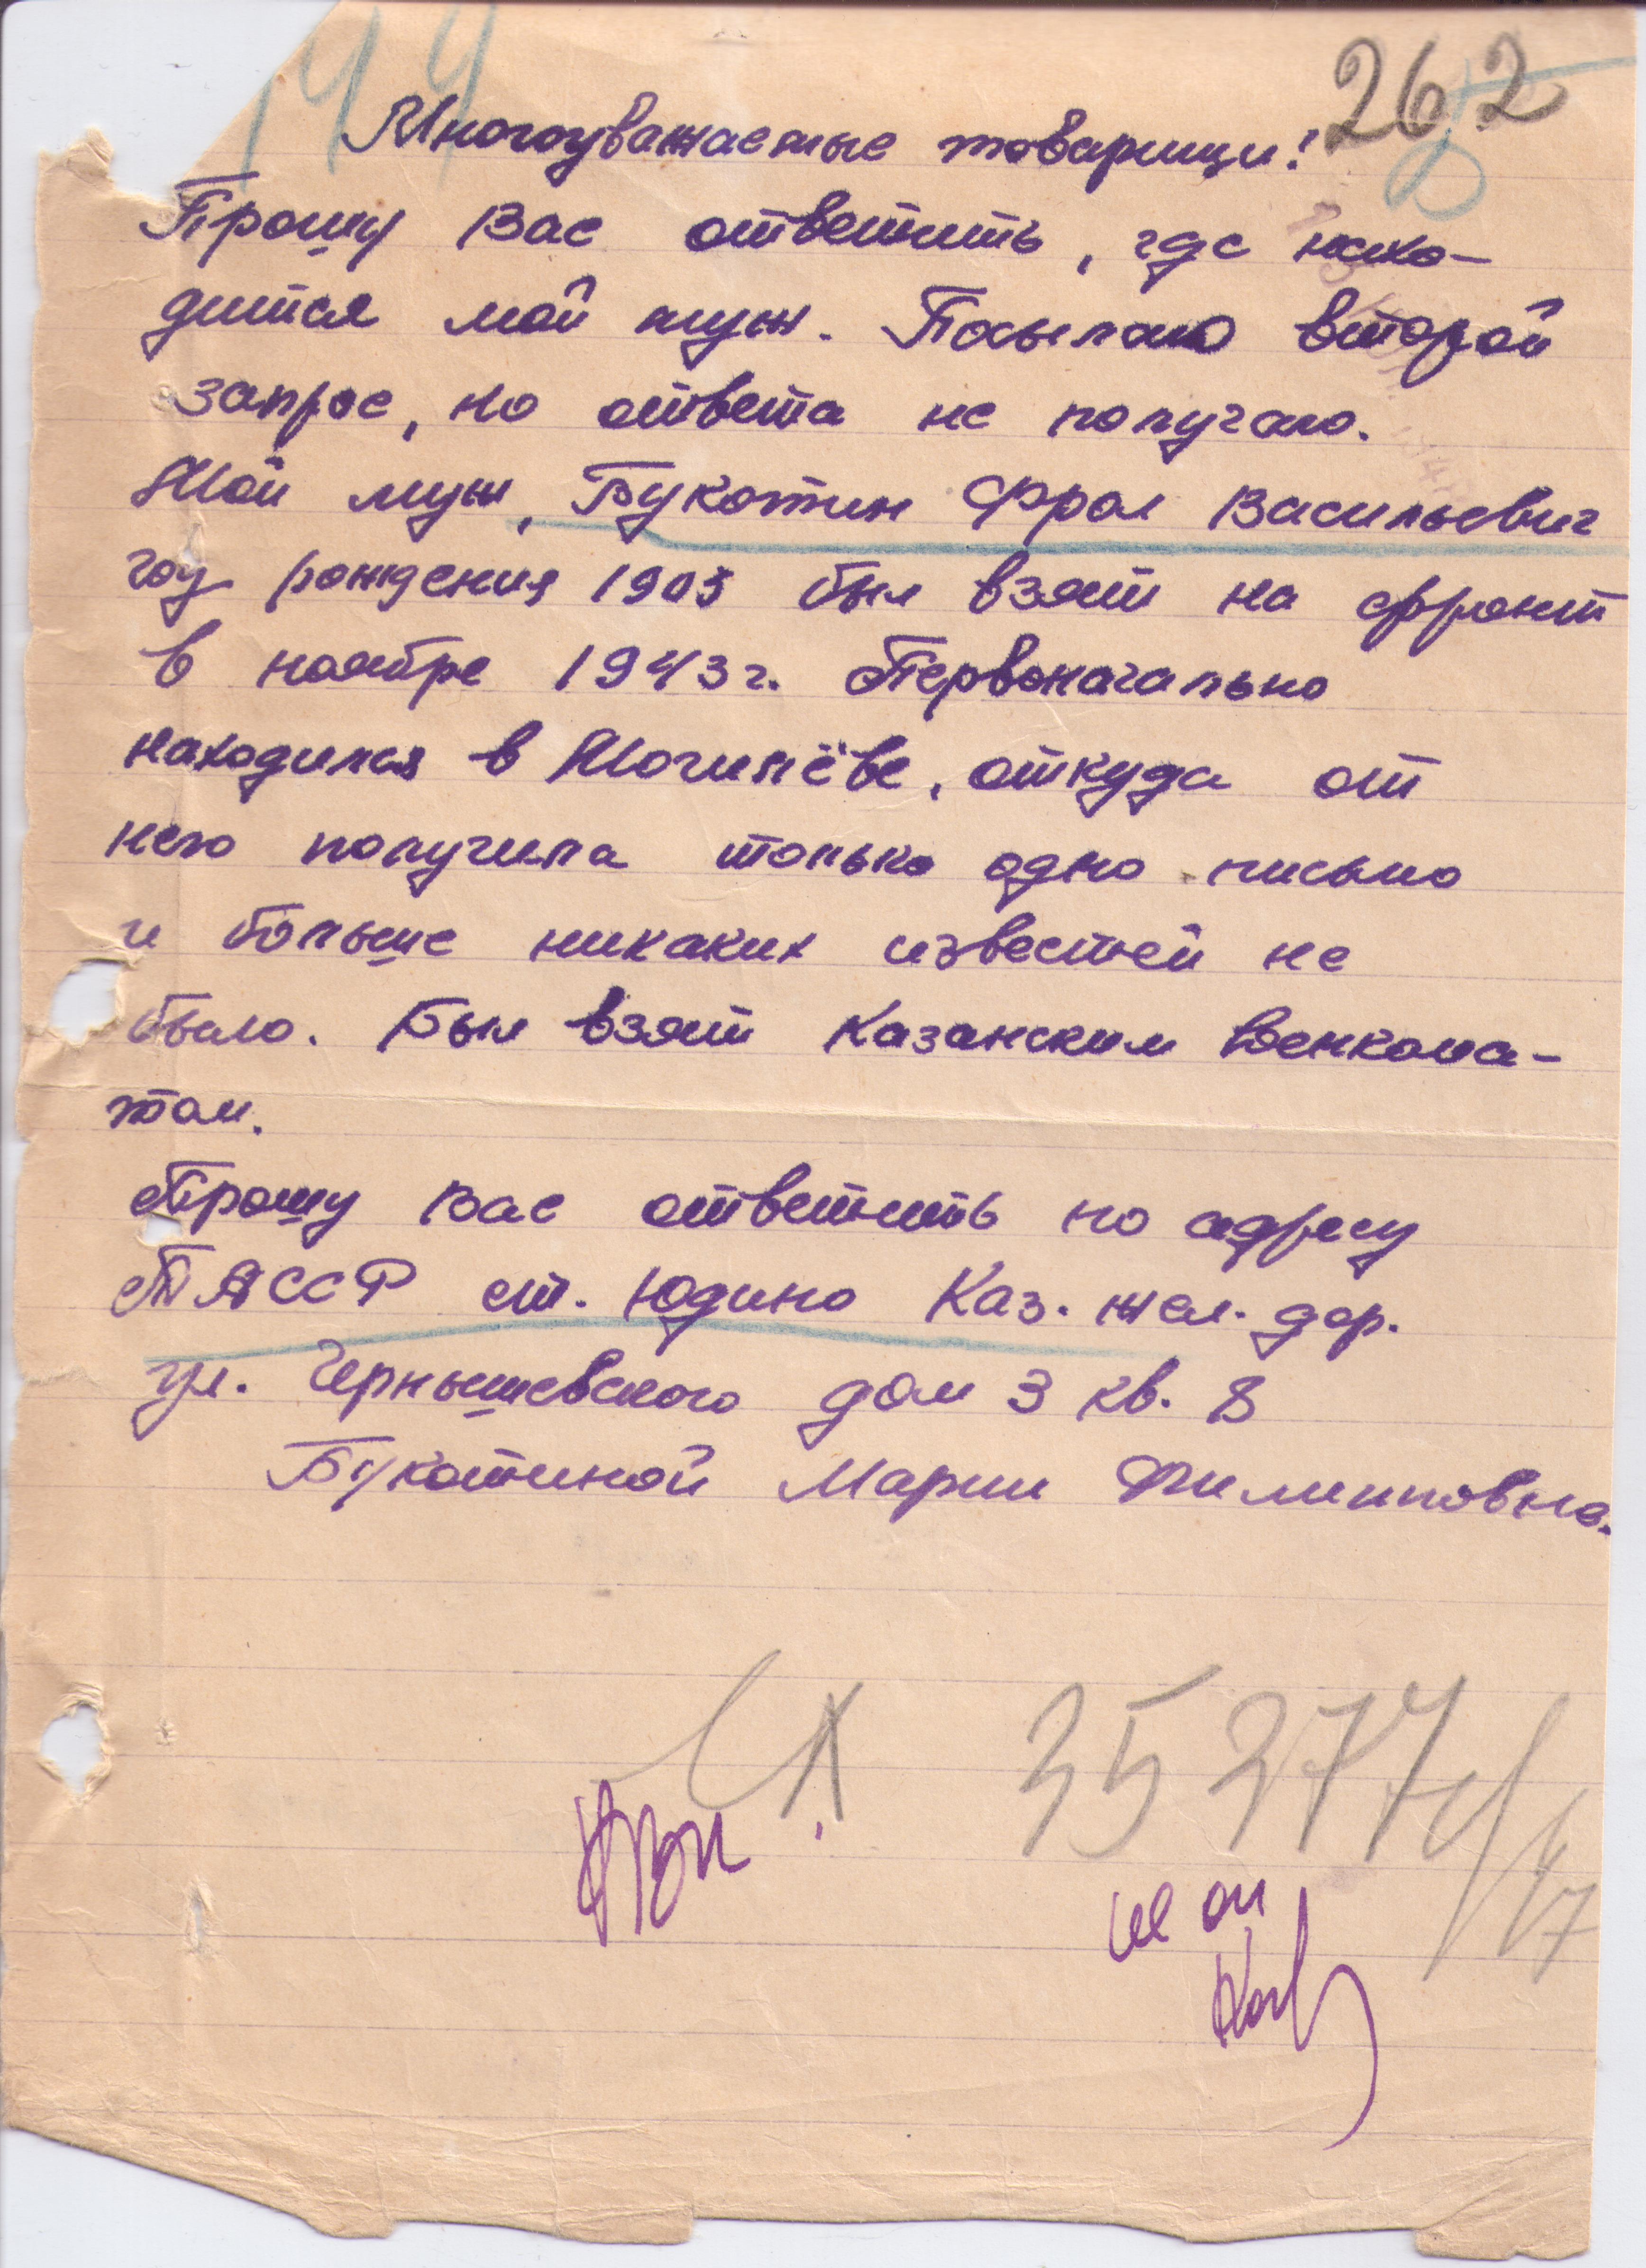 144
262
Многоуважаемые товарищи!
Прошу Вас ответить, где нахо-
дится мой муж. Посылаю второй
запрос, но ответа не получаю.
Мой муж, Букотин Фрол Васильевич
год рождения 1903 был взят на фронт
в ноябре 1943 г. Первоначально
находился в Могилёве, откуда от
него получила только одно письмо
и больше никаких известей не
было. Был взят Казанским Военкома-
том.
Прошу Вас ответить по адресу
ТАССР ст. Юдино Каз. жел. дор.
ул. Чернышевского дом 3 кв. 8
Букотиной Марии Филипповне.